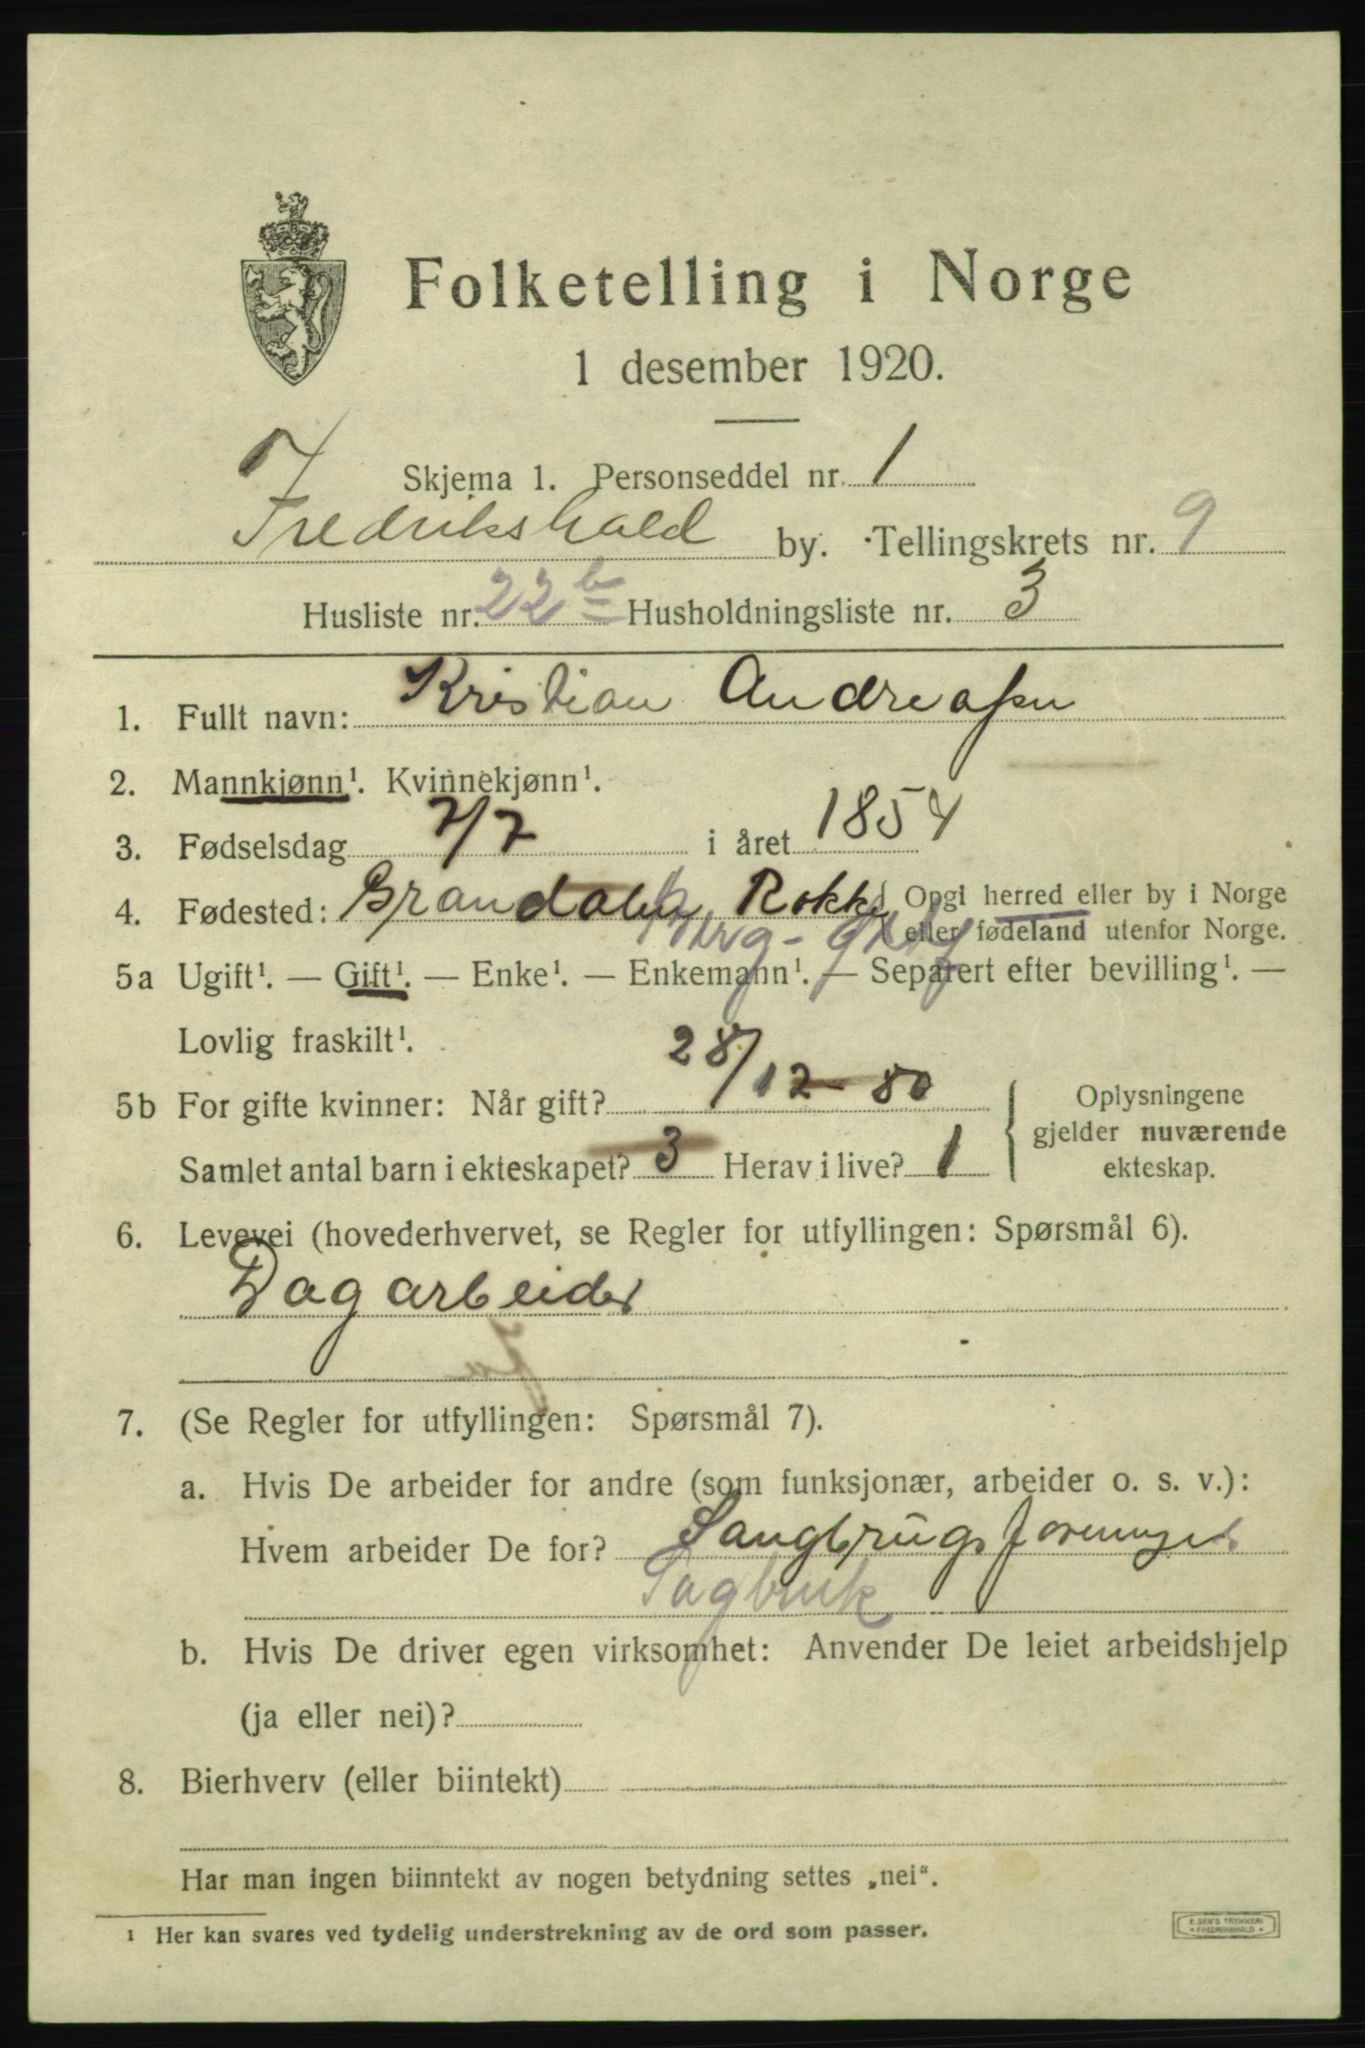 Folketelling i Norge
1 desember 1920.
Skjema 1. Personseddel nr. 1
Fredrikshald by. Tellingskrets nr. 9
Husliste nr. 22 b Husholdningsliste nr. 3
1. Fullt navn: Kristian Andreassen
2. Mannkjønn¹. Kvinnekjønn¹.
3. Fødselsdag 7/7 i året 1854
4. Fødested: Rokke { Opgi herred eller by i Norge
eller fødeland utenfor Norge.
Berg
5a Ugift¹. — Gift¹. — Enke¹. — Enkemann¹. — Separert efter bevilling¹. —
Lovlig fraskilt¹.
5b For gifte kvinner: Når gift? 28/12-80
Samlet antal barn i ekteskapet? 3 Herav i live? 1
{ Oplysningene
gjelder nuværende
ekteskap.
6. Levevei (hovederhvervet, se Regler for utfyllingen: Spørsmål 6).
Dagarbeider
7. (Se Regler for utfyllingen: Spørsmål 7).
a. Hvis De arbeider for andre (som funksjonær, arbeider o. s. v.):
Hvem arbeider De for? Saugbrugsforeningen
Sagbruk
b. Hvis De driver egen virksomhet: Anvender De leiet arbeidshjelp
(ja eller nei)?
8. Bierhverv (eller biintekt)
Har man ingen biinntekt av nogen betydning settes „nei“.
¹ Her kan svares ved tydelig understrekning av de ord som passer.
E. SEM'S TRYKKERI
* FREDRIKSHALD *